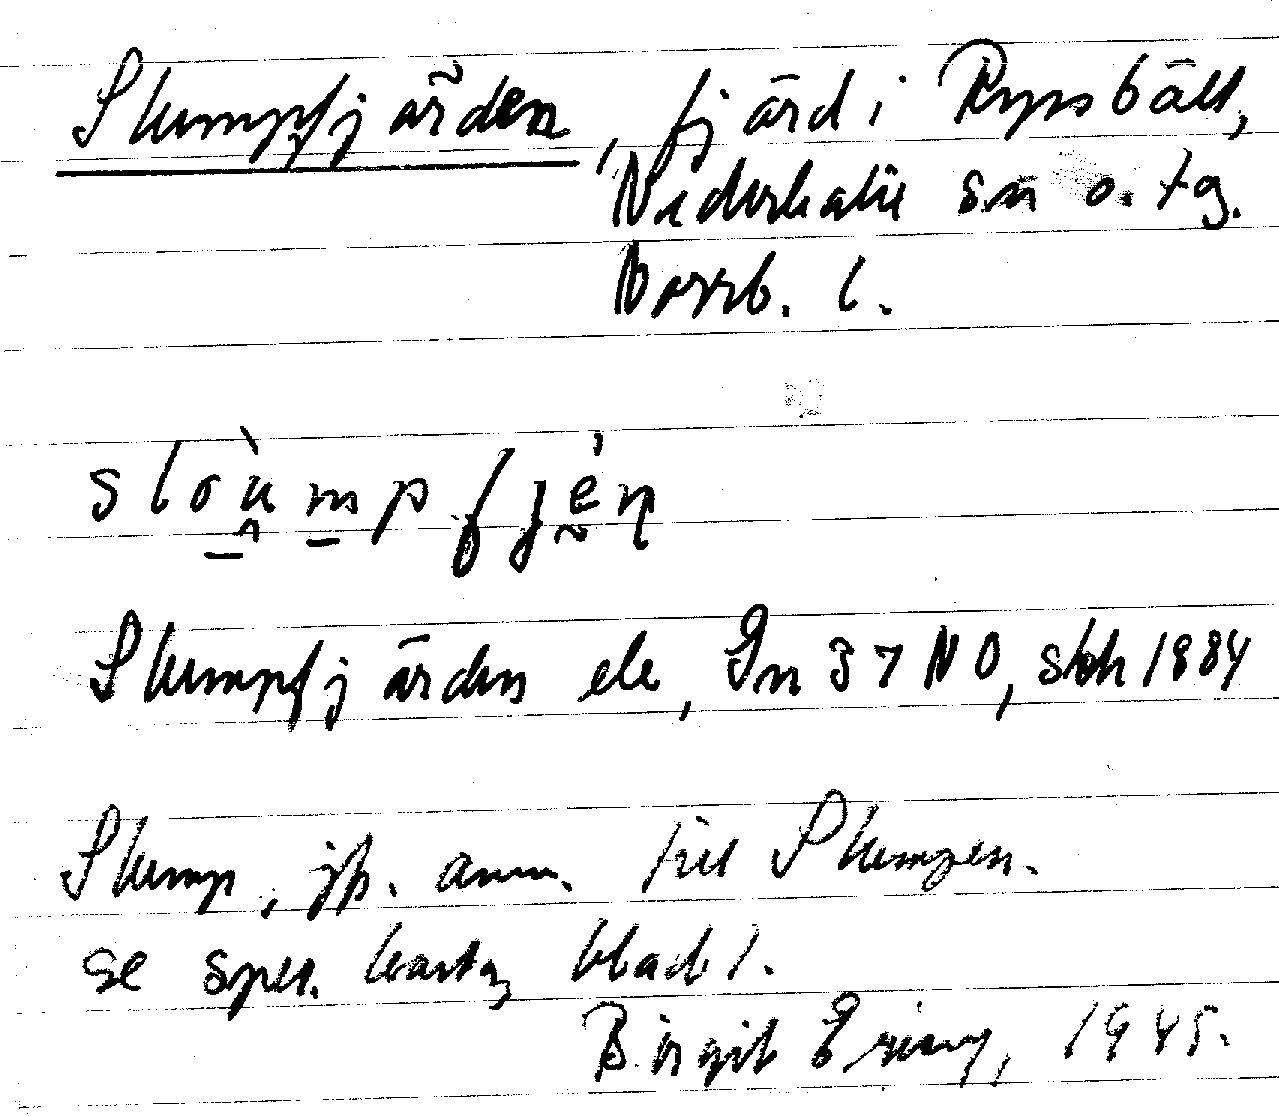 Stumpfjärden, fjärd i Ryssbält,
Nederkalix sn o. tg.
Norrb. l.
stòumpfjén
Stumpfjärden ek, Gn 37 NO, 1884
Stump, jfr. anm. till Stumpen.
se spec. karta, blad 1.
Birgit 1945.